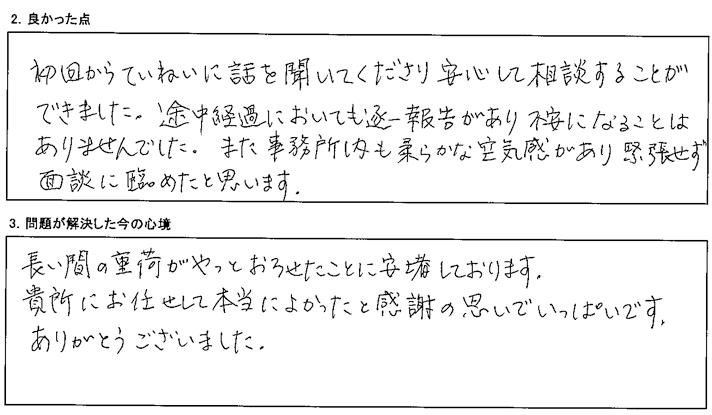 2. 良かった点
初回からていねいに話を聞いてくださり安心して相談することが
できました。途中経過においても逐一報告があり不安になることは
ありませんでした。また事務所内も柔らかな空気感があり緊張せず
面談に臨めたと思います.
3. 問題が解決した今の心境
長い間の重荷がやっとおろせたことに安堵しております.
貴所にお任せして本当によかったと感謝の思いでいっぱいです.
ありがとうございました.